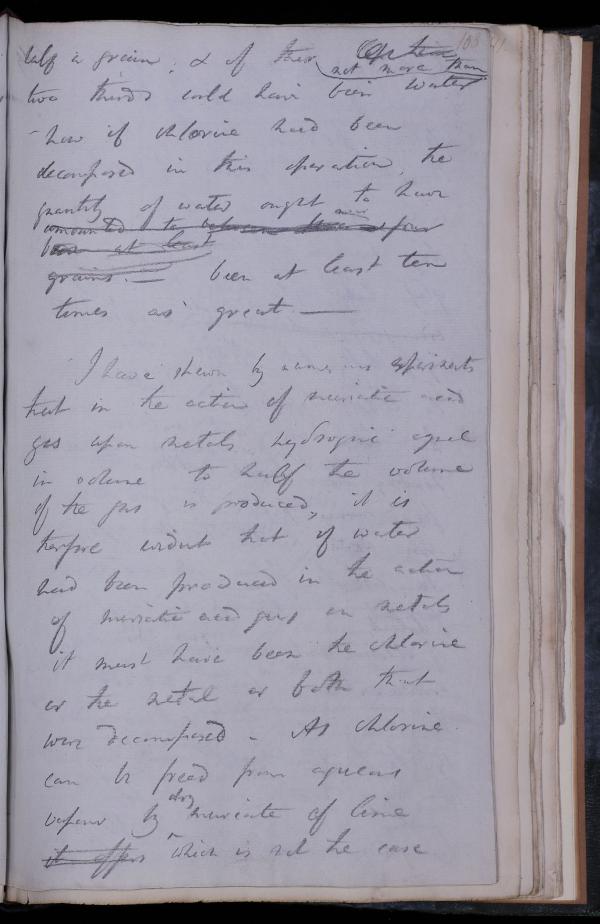 half a grain, & of this
not more than
two thirds could have been water
- how if chlorine had been
decomposed in this operation, the
quantity of water ought to have
amounted to between four
at least
grains. — been at least ten
times as great —
I have shewn by numerous experiments
that in the action of muriatic acid
gas upon metals hydrogene equal
in volume to half the volume
of the gas is produced, it is
therfore evident that if water
had been produced in the action
of muriatic acid gas on metals
it must have been the chlorine
or the metal or both that
were decomposed - As chlorine
can be freed from aqueous
dry
vapour by muriate of lime
it offers which is not the case